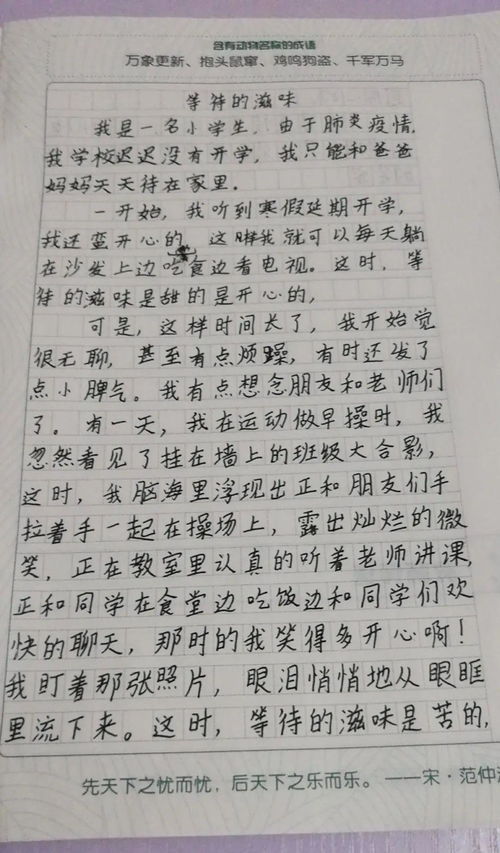 含有动物名称的成语
万象更新、抱头鼠窜、鸡鸣狗盗、千军万马
等待的滋味
我是一名小学生，由于肺炎疫情，
我学校迟迟没有开学，我只能和爸爸
妈妈天天待在家里．
一开始，我听到寒假延期开学，
我还蛮开心的，这样我就可以每天躺
在沙发上边吃食边看电视。这时，等
待的滋味是甜的是开心的，
可是，这样时间长了，我开始觉
很无聊，甚至有点烦躁，有时还发了
点小脾气。我有点想念朋友和老师们
了。有一天，我在运动做早操时，我
忽然看见了挂在墙上的班级大合影，
这时，我脑海里浮现出正和朋友们手
拉着手一起在操场上，露出灿烂的微
笑，正在教室里认真的听着老师讲课，
正和同学在食堂边吃饭边和同学们欢
快的聊天，那时的我笑得多开心啊！
我盯着那张照片，眼泪悄悄地从眼眶
里流下来。这时，等待的滋味是苦的，
先天下之忧而忧，后天下之乐而乐。——宋·范仲